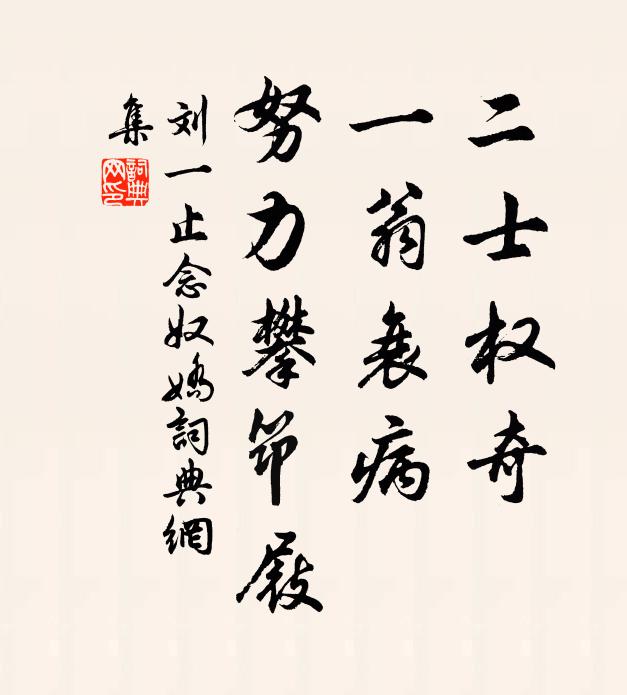 二士权奇
一翁衰病
努力攀筇屐
刘一止念奴嬌詞典網
集
詞典网印